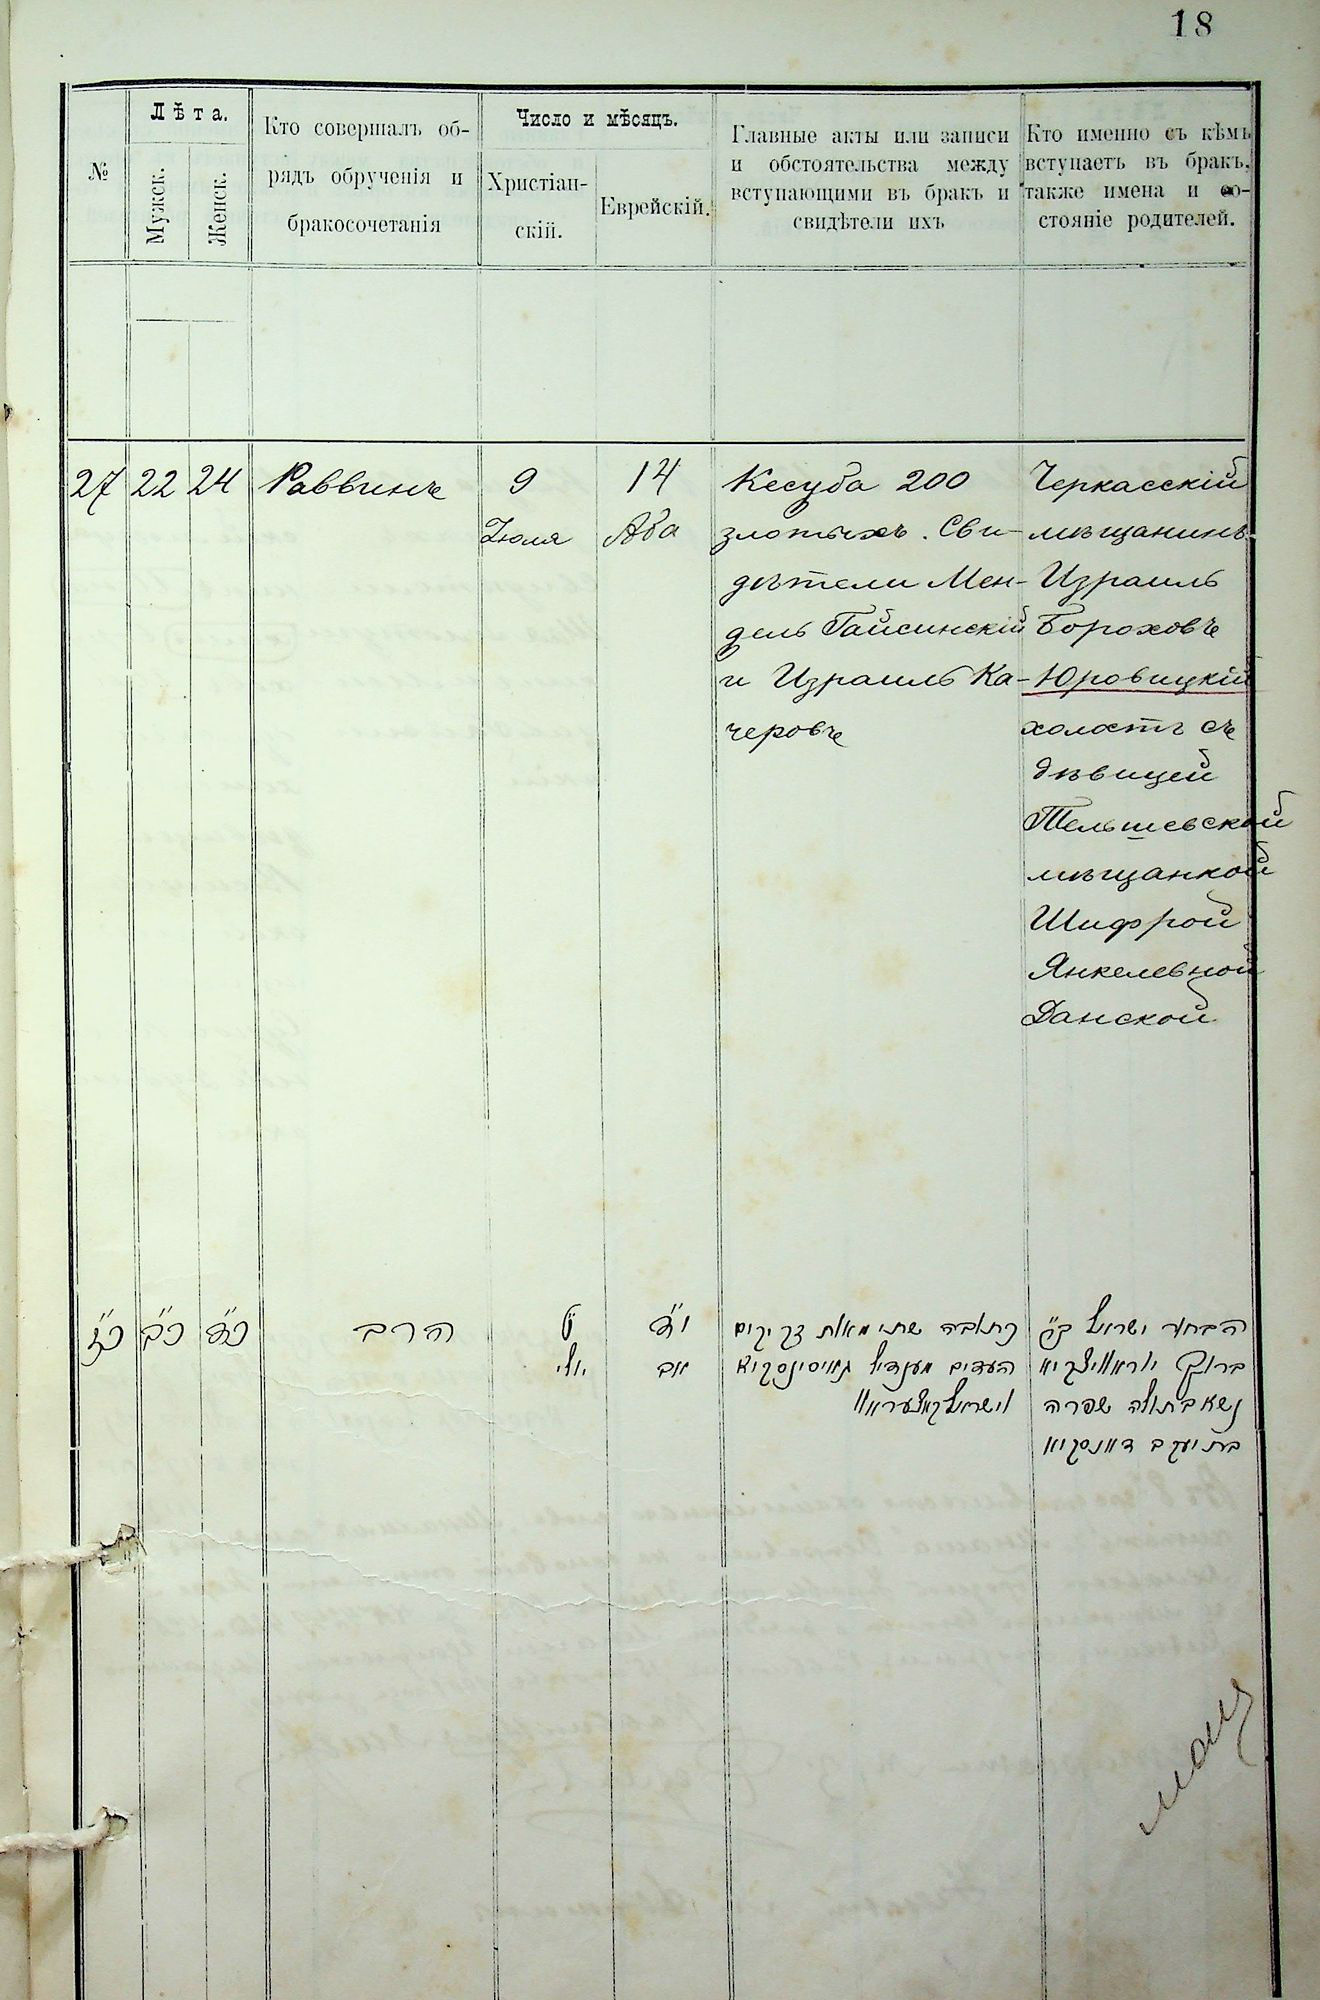 18
№
Лѣта.
Мужск.
Женск.
Кто совершалъ об-
рядъ обрученія и
бракосочетанія
Число и мѣсяцъ.
Христіан-
скій.
Еврейскій.
Главные акты или записи
и обстоятельства между
вступающими въ бракъ и
свидѣтели ихъ
Кто именно съ кѣмъ
вступаетъ въ бракъ,
также имена и со-
стояніе родителей.
27
22
24
Раввинъ
9
Іюля
14
Аба
Кесуба 200
злотыхъ. Сви-
дѣтели Мен-
дель Гайсинскій
и Израиль Ка-
черовъ
Черкасскій
мѣщанинъ
Израиль
Бороховъ
Юровицкій
холостъ съ
дѣвицей
Тельшевской
мѣщанкой
Шифрой
Янкелевной
Данской
כ״ז
כ״ב
כ״ד
הרב
ט
יולי
י״ד
אב
כתובה שתי מאות זקוקים
העדים מענדיל גאיסינסקיא
וישראל קאצעראוו
הבחור ישראל ב״ר
ברוך יוראוויצקיא
נשא בתולה שפרה
בת יעקב דאנסקיא